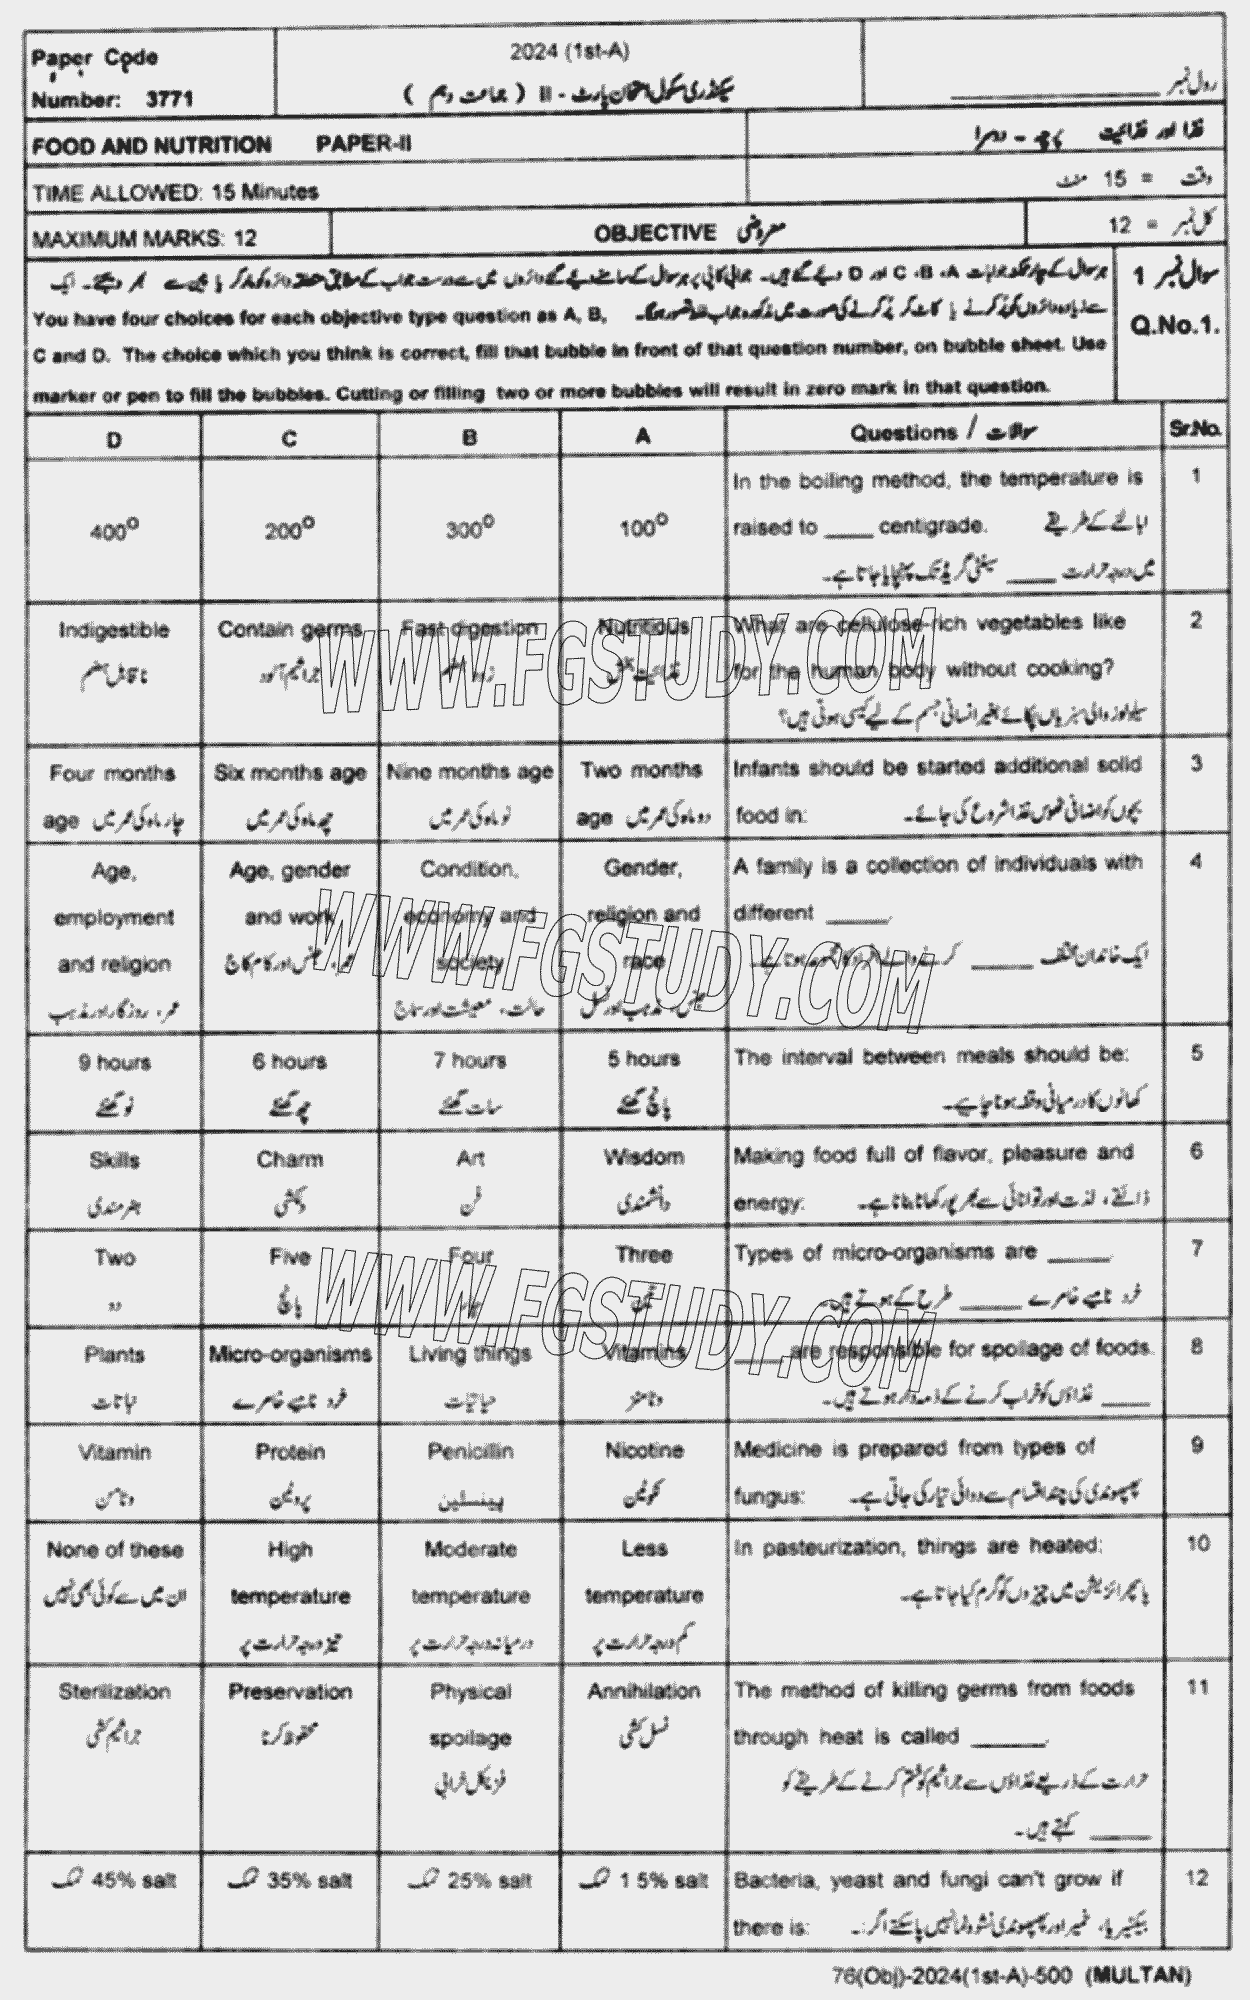 Paper Code
Number: 3771
2024 (1st-A)
سیکنڈری سکول امتحان پارٹ - II ( جماعت دہم )
رول نمبر
FOOD AND NUTRITION PAPER-II
غذا اور غذائیت پرچہ - دوسرا
TIME ALLOWED: 15 Minutes
وقت = 15 منٹ
MAXIMUM MARKS: 12
OBJECTIVE معروضی
کل نمبر = 12
سوال نمبر 1
Q.No.1.
ہر سوال کے چار ممکنہ جوابات A، B، C اور D دیئے گئے ہیں۔ جوابی کاپی پر ہر سوال کے سامنے دیئے گئے دائروں میں سے درست جواب کے مطابق متعلقہ دائرہ کو مارکر یا پین سے بھر دیجئے۔ ایک
سے زیادہ دائروں کو پُر کرنے یا کاٹ کر پُر کرنے کی صورت میں مذکورہ جواب غلط تصور ہوگا۔
You have four choices for each objective type question as A, B,
C and D. The choice which you think is correct, fill that bubble in front of that question number, on bubble sheet. Use
marker or pen to fill the bubbles. Cutting or filling two or more bubbles will result in zero mark in that question.
D C B A Questions / سوالات Sr.No.
In the boiling method, the temperature is 1
raised to ____ centigrade. ابالنے کے طریقے
میں درجہ حرارت ____ سینٹی گریڈ تک پہنچایا جاتا ہے۔
400° 200° 300° 100°
Indigestible Contain germs Fast digestion Nutritious What are cellulose-rich vegetables like 2
ناقابل ہضم جراثیم آلود زود ہضم غذائیت بخش for the human body without cooking?
سیلولوز والی سبزیاں پکائے بغیر انسانی جسم کے لیے کیسی ہوتی ہیں؟
Four months Six months age Nine months age Two months Infants should be started additional solid 3
age چار ماہ کی عمر میں چھ ماہ کی عمر میں نو ماہ کی عمر میں age دو ماہ کی عمر میں food in: بچوں کو اضافی ٹھوس غذا شروع کی جائے۔
Age, Age, gender Condition, Gender, A family is a collection of individuals with 4
employment and work economy and religion and different _____.
and religion عمر، جنس اور کام کاج society race ایک خاندان مختلف _____ کرنے والے افراد کا مجموعہ ہوتا ہے۔
عمر، روزگار اور مذہب حالت، معیشت اور سماج جنس، مذہب اور نسل
9 hours 6 hours 7 hours 5 hours The interval between meals should be: 5
نو گھنٹے چھ گھنٹے سات گھنٹے پانچ گھنٹے کھانوں کا درمیانی وقفہ ہونا چاہیے۔
Skills Charm Art Wisdom Making food full of flavor, pleasure and 6
ہنرمندی دلکشی فن دانشمندی energy: ذائقے، لذت اور توانائی سے بھرپور کھانا بنانا ہے۔
Two Five Four Three Types of micro-organisms are _____. 7
دو پانچ چار تین خرد نامیے خاصرے _____ طرح کے ہوتے ہیں۔
Plants Micro-organisms Living things Vitamins ____ are responsible for spoilage of foods. 8
نباتات خرد نامیے خاصرے حیاتیات وٹامنز ____ غذاؤں کو خراب کرنے کے ذمہ دار ہوتے ہیں۔
Vitamin Protein Penicillin Nicotine Medicine is prepared from types of 9
وٹامن پروٹین پینسلین نکوٹین fungus: پھپھوندی کی چند اقسام سے دوائی تیار کی جاتی ہے۔
None of these High Moderate Less In pasteurization, things are heated: 10
ان میں سے کوئی بھی نہیں temperature temperature temperature پاسچرائزیشن میں چیزوں کو گرم کیا جاتا ہے۔
تیز درجہ حرارت پر درمیانہ درجہ حرارت پر کم درجہ حرارت پر
Sterilization Preservation Physical Annihilation The method of killing germs from foods 11
جراثیم کشی محفوظ کرنا spoilage نسل کشی through heat is called _____.
فزیکل خرابی حرارت کے ذریعے غذاؤں سے جراثیم کو ختم کرنے کے طریقے کو
_____ کہتے ہیں۔
45% salt نمک 35% salt نمک 25% salt نمک 15% salt نمک Bacteria, yeast and fungi can't grow if 12
there is: بیکٹیریا، خمیر اور پھپھوندی نشوونما نہیں پا سکتے اگر:۔
76(Obj)-2024(1st-A)-500 (MULTAN)
WWW.FGSTUDY.COM
WWW.FGSTUDY.COM
WWW.FGSTUDY.COM